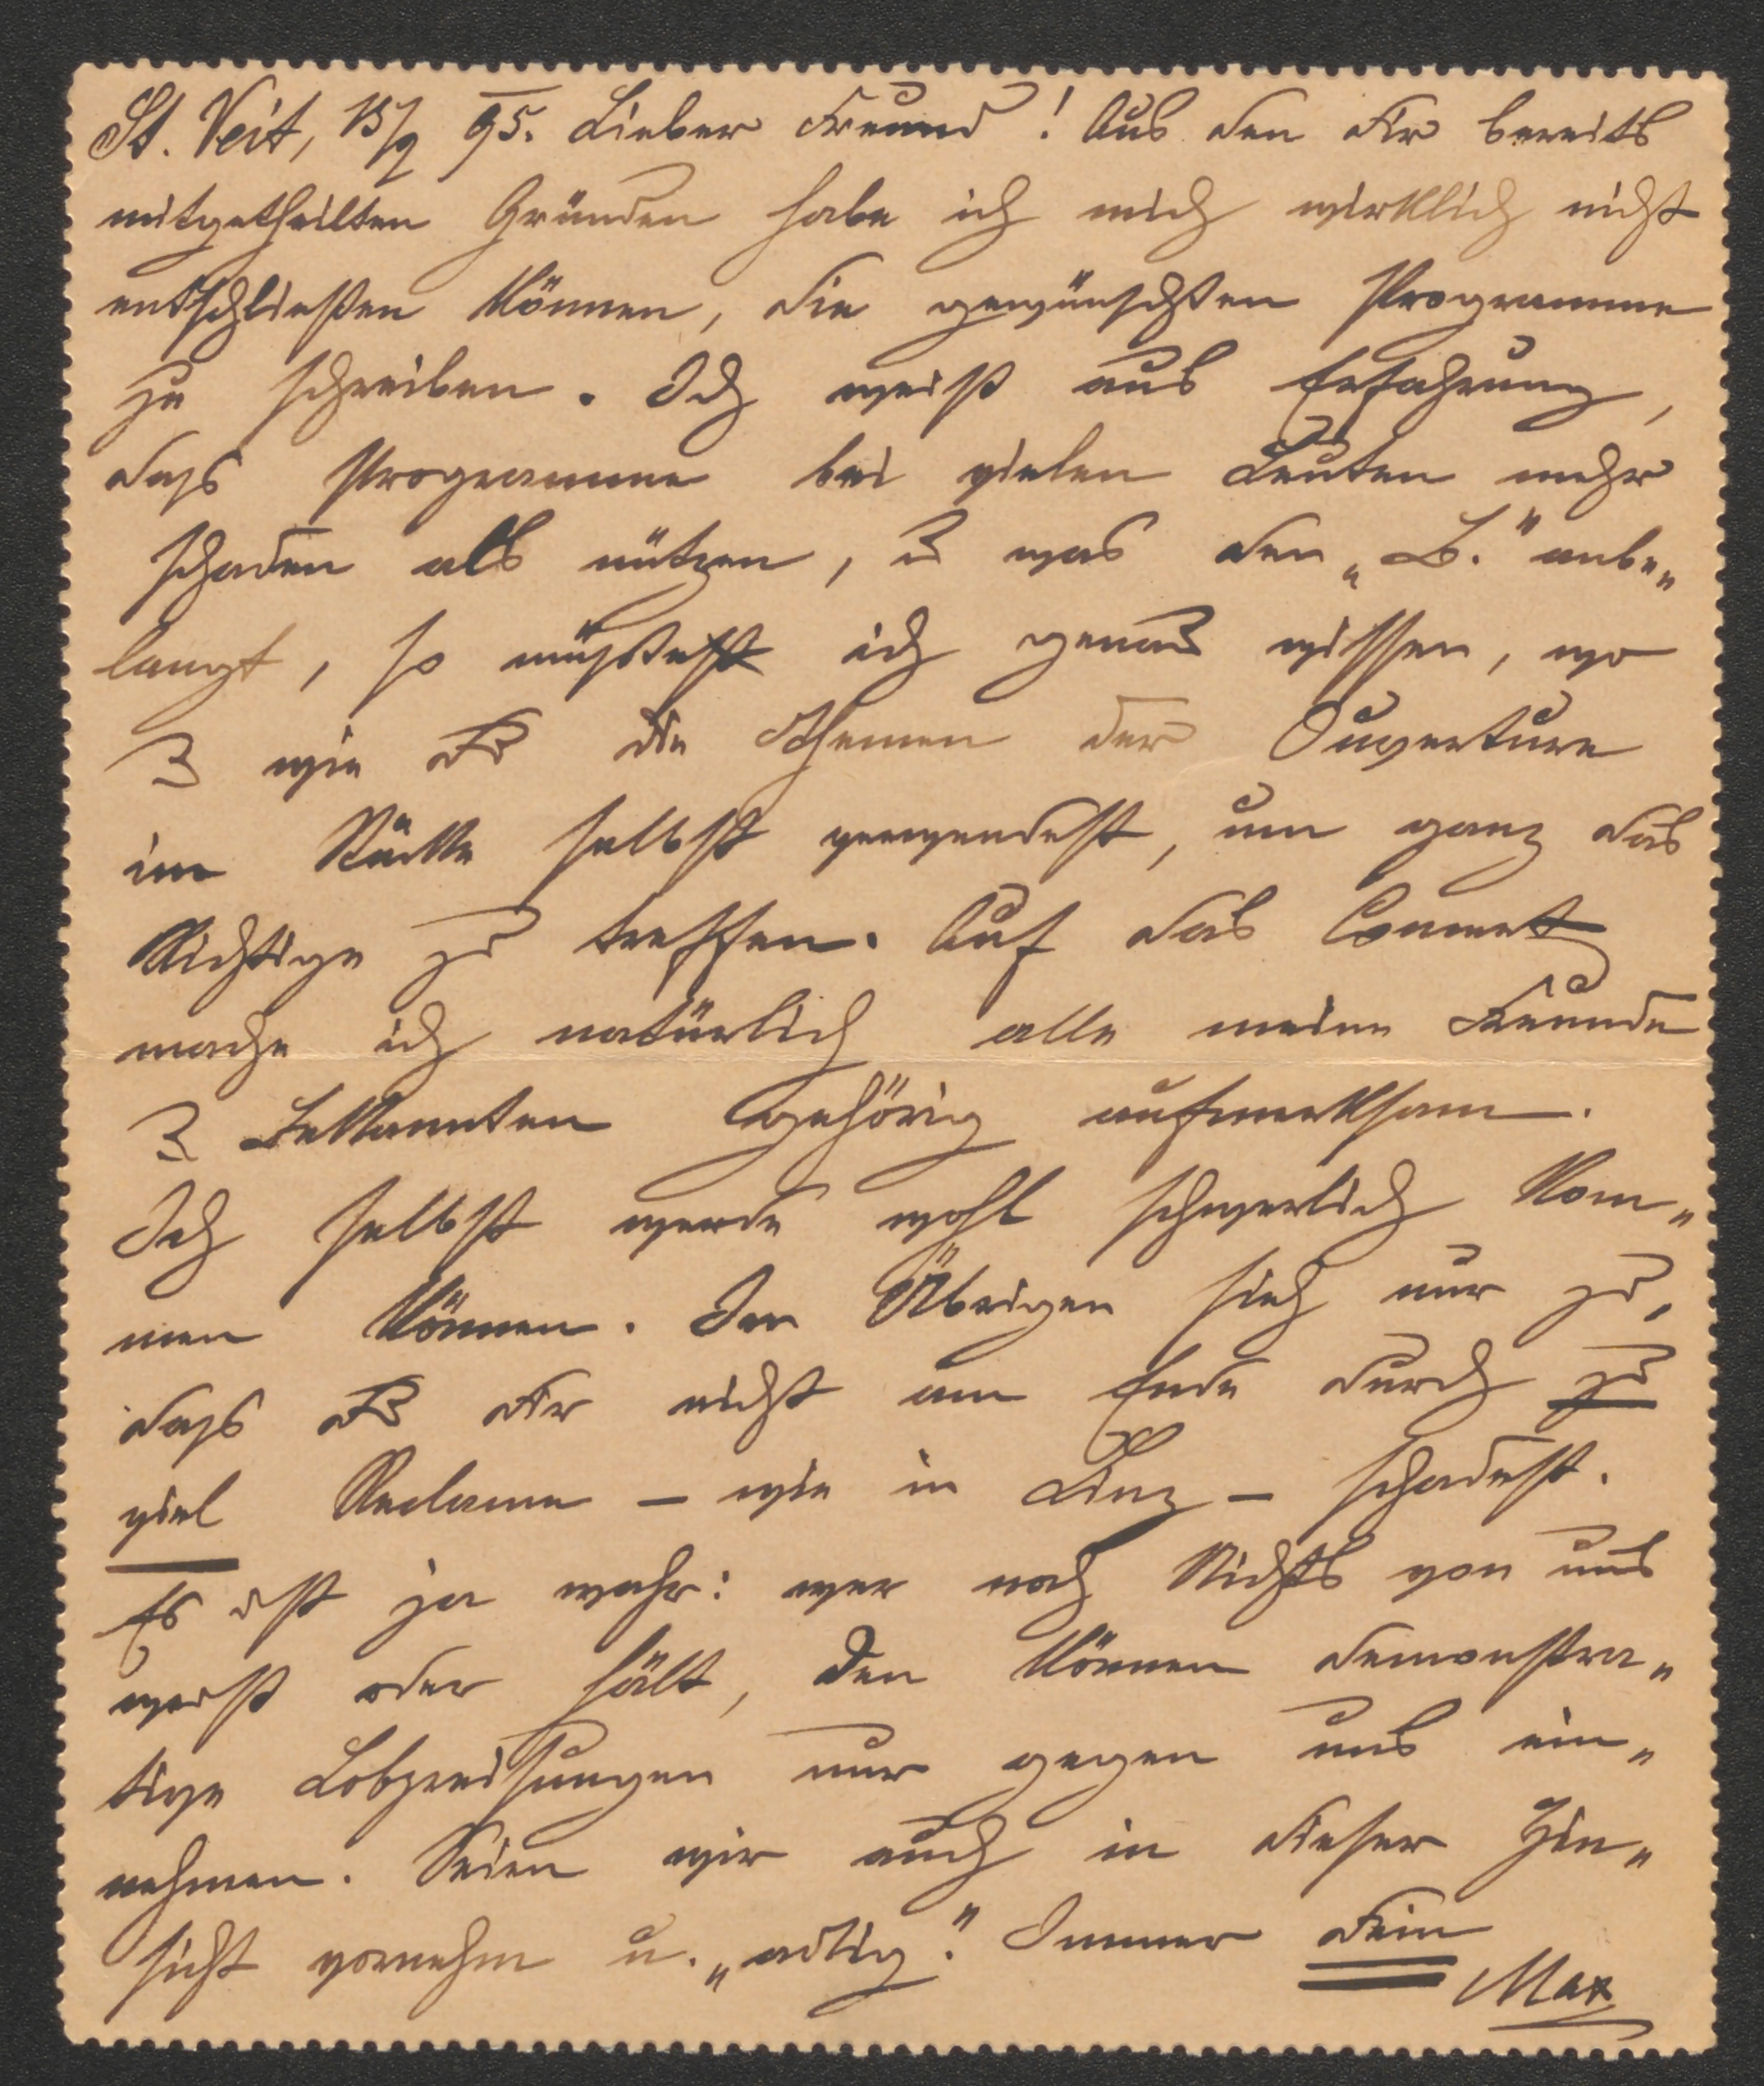 St. Veit, 15/9 95. Lieber Freund! Aus den Dir bereits
mitgetheilten Gründen habe ich mich wirklich nicht
entschließen können, die gewünschten Programme
zu schreiben. Ich weiß aus Erfahrung,
dass Programme bei vielen Leuten mehr
schaden als nützen, u was den „B." anbe„
langt, so müsste ich genau wissen, wo
u wie Du die Themen der Ouverture
im Stücke selbst verwendest, um ganz das
Richtige zu treffen. Auf das Concert
mache ich natürlich alle meine Freunde
u Bekannten gehörig aufmerksam.
Ich selbst werde wohl schwerlich kom„
men können. Im Übrigen sieh nur zu,
dass Du Dir nicht am Ende durch zu
viel Reclame – wie in Linz – schadest.
Es ist ja wahr: wer noch Nichts von uns
weiß oder hält, den können demonstra„
tive Lobpreisungen nur gegen uns ein„
nehmen. Seien wir auch in dieser Hin„
sicht vornehm u. „adlig". Immer Dein
Max